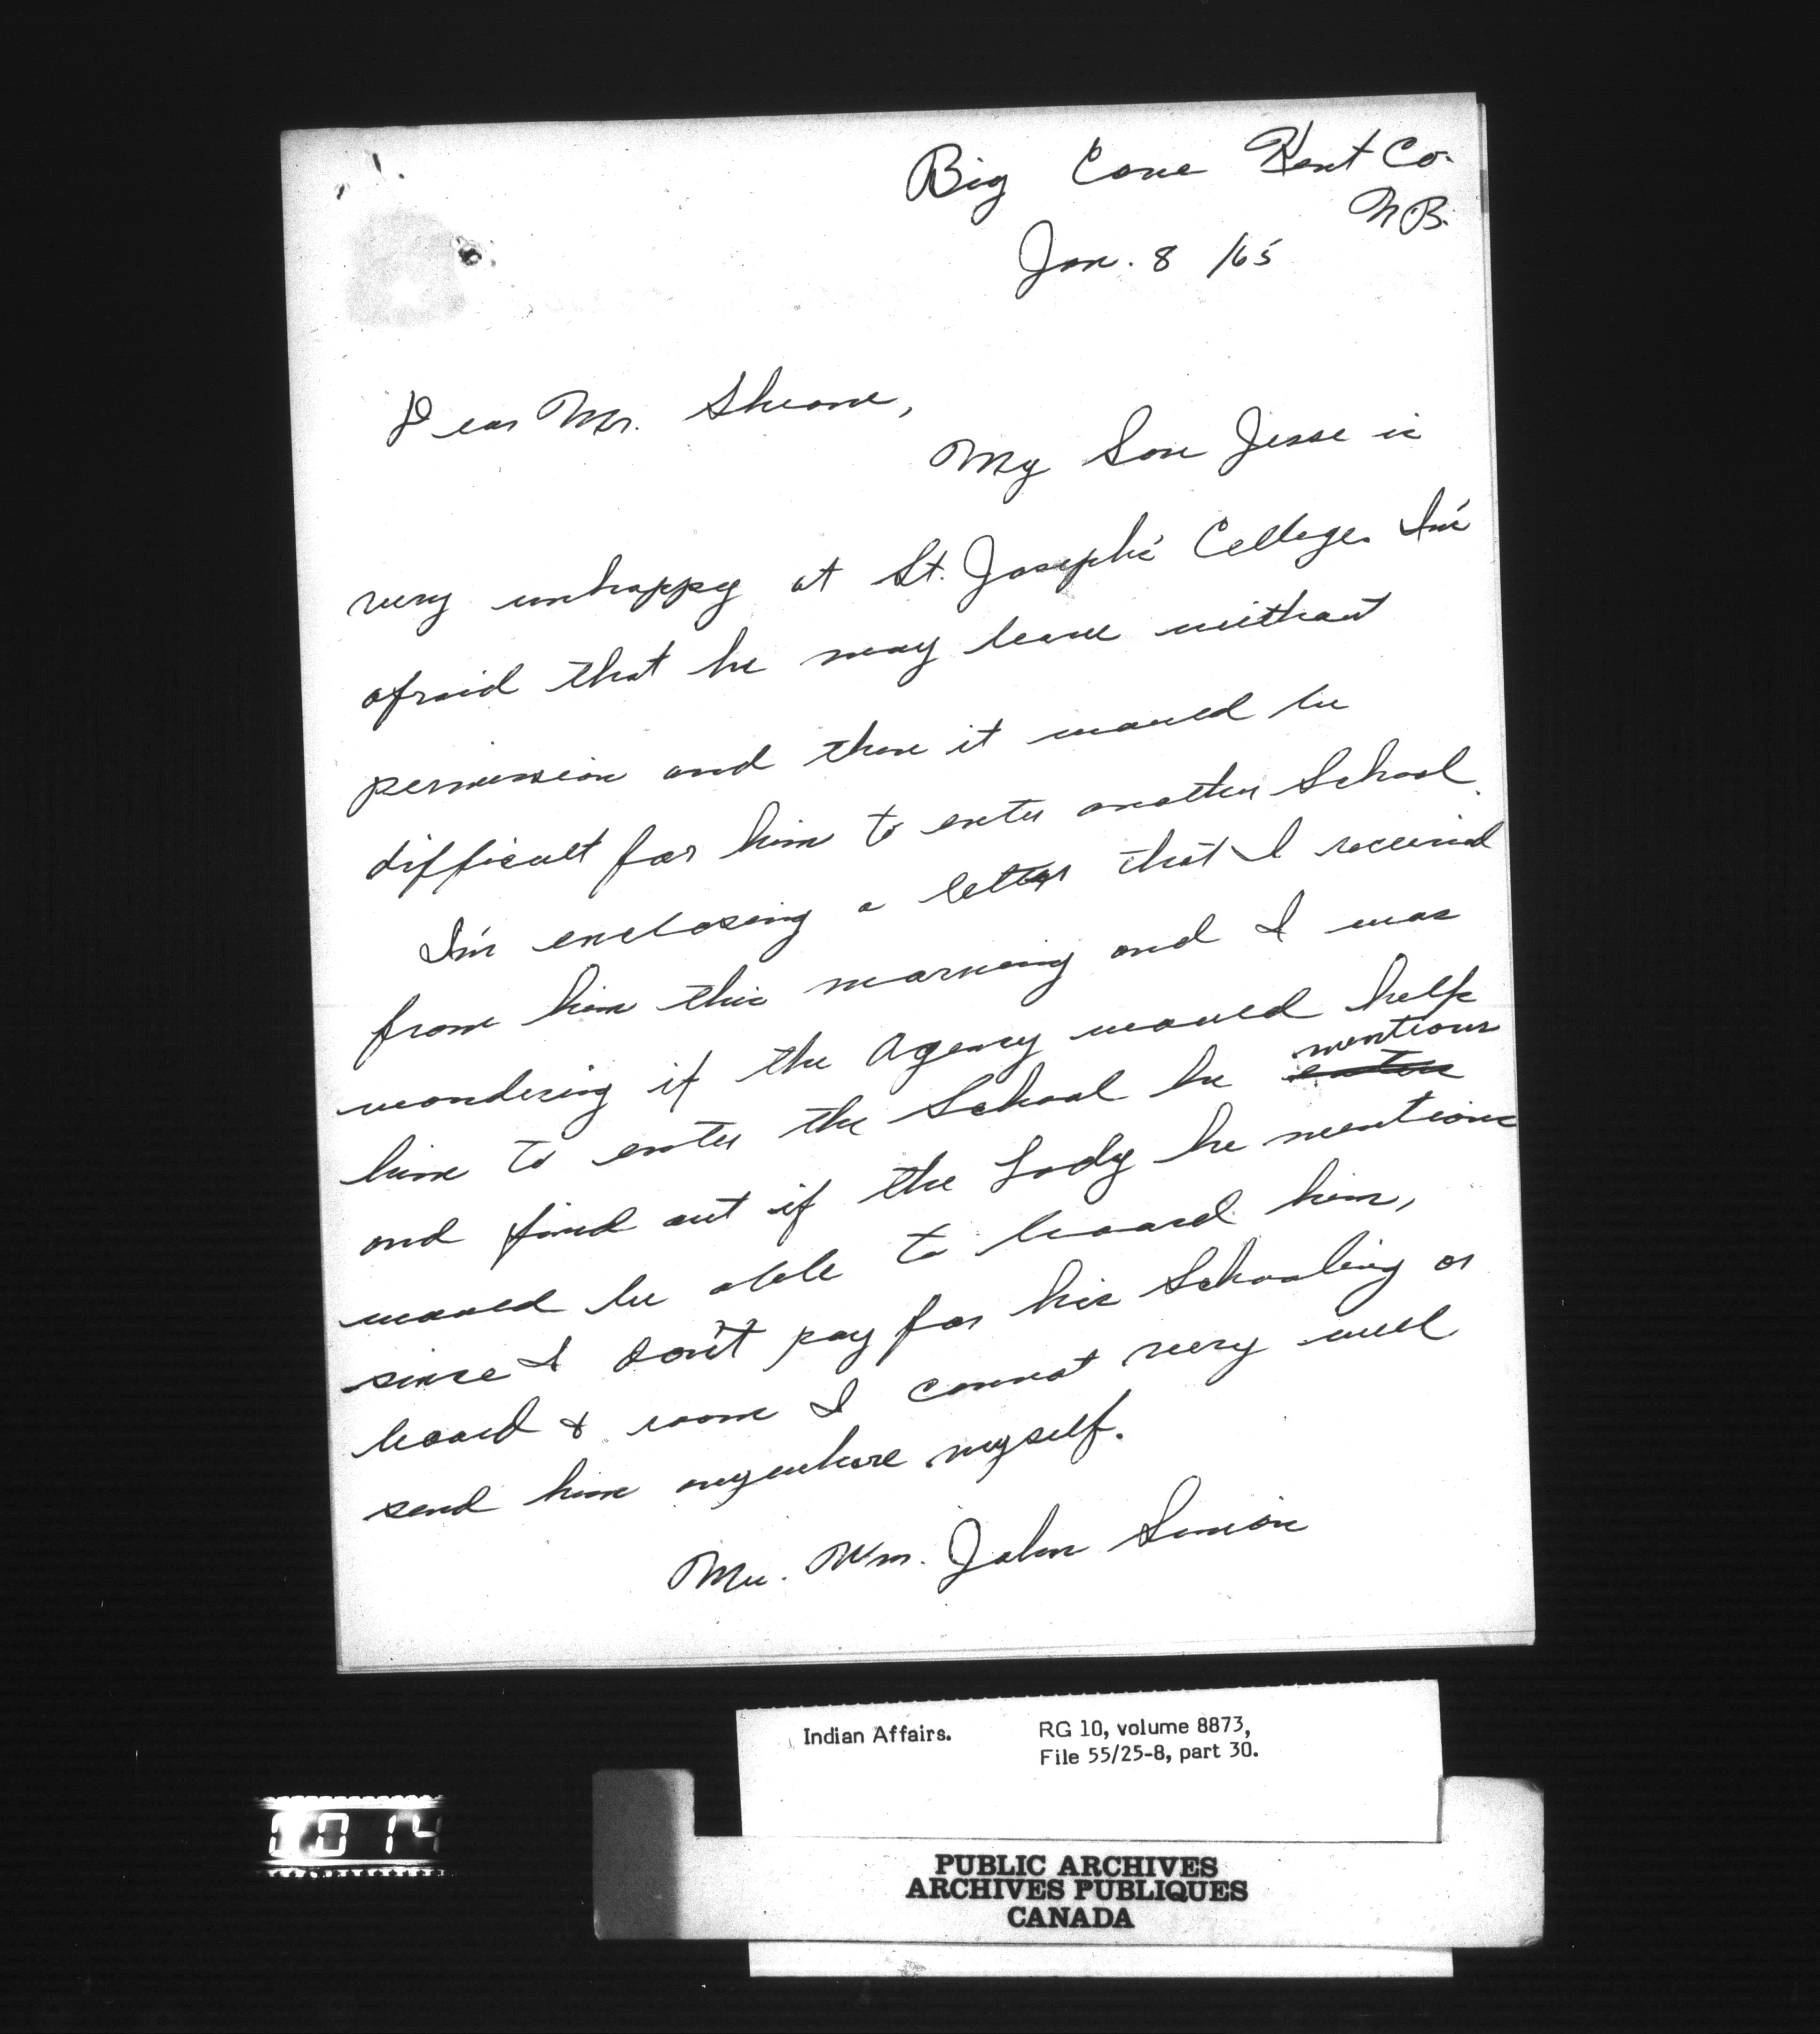 Big Cove Kent Co.
N B.
Jan. 8 /65
Dear Mr. Sheane,
My Son Jesse is
very unhappy at St. Joseph's College. I'm
afraid that he may leave without
permission and then it would be
difficult for him to enter another School.
I'm enclosing a letter that I received
from him this morning and I was
wondering if the Agency would help
him to enter the School he mentions
and find out if the Lady he mentions
would be able to board him,
since I don't pay for his Schooling or
board & room I cannot very well
send him anywhere myself.
Mrs. Wm. John Simon
Indian Affairs. RG 10, volume 8873,
File 55/25-8, part 30.
1014
PUBLIC ARCHIVES
ARCHIVES PUBLIQUES
CANADA